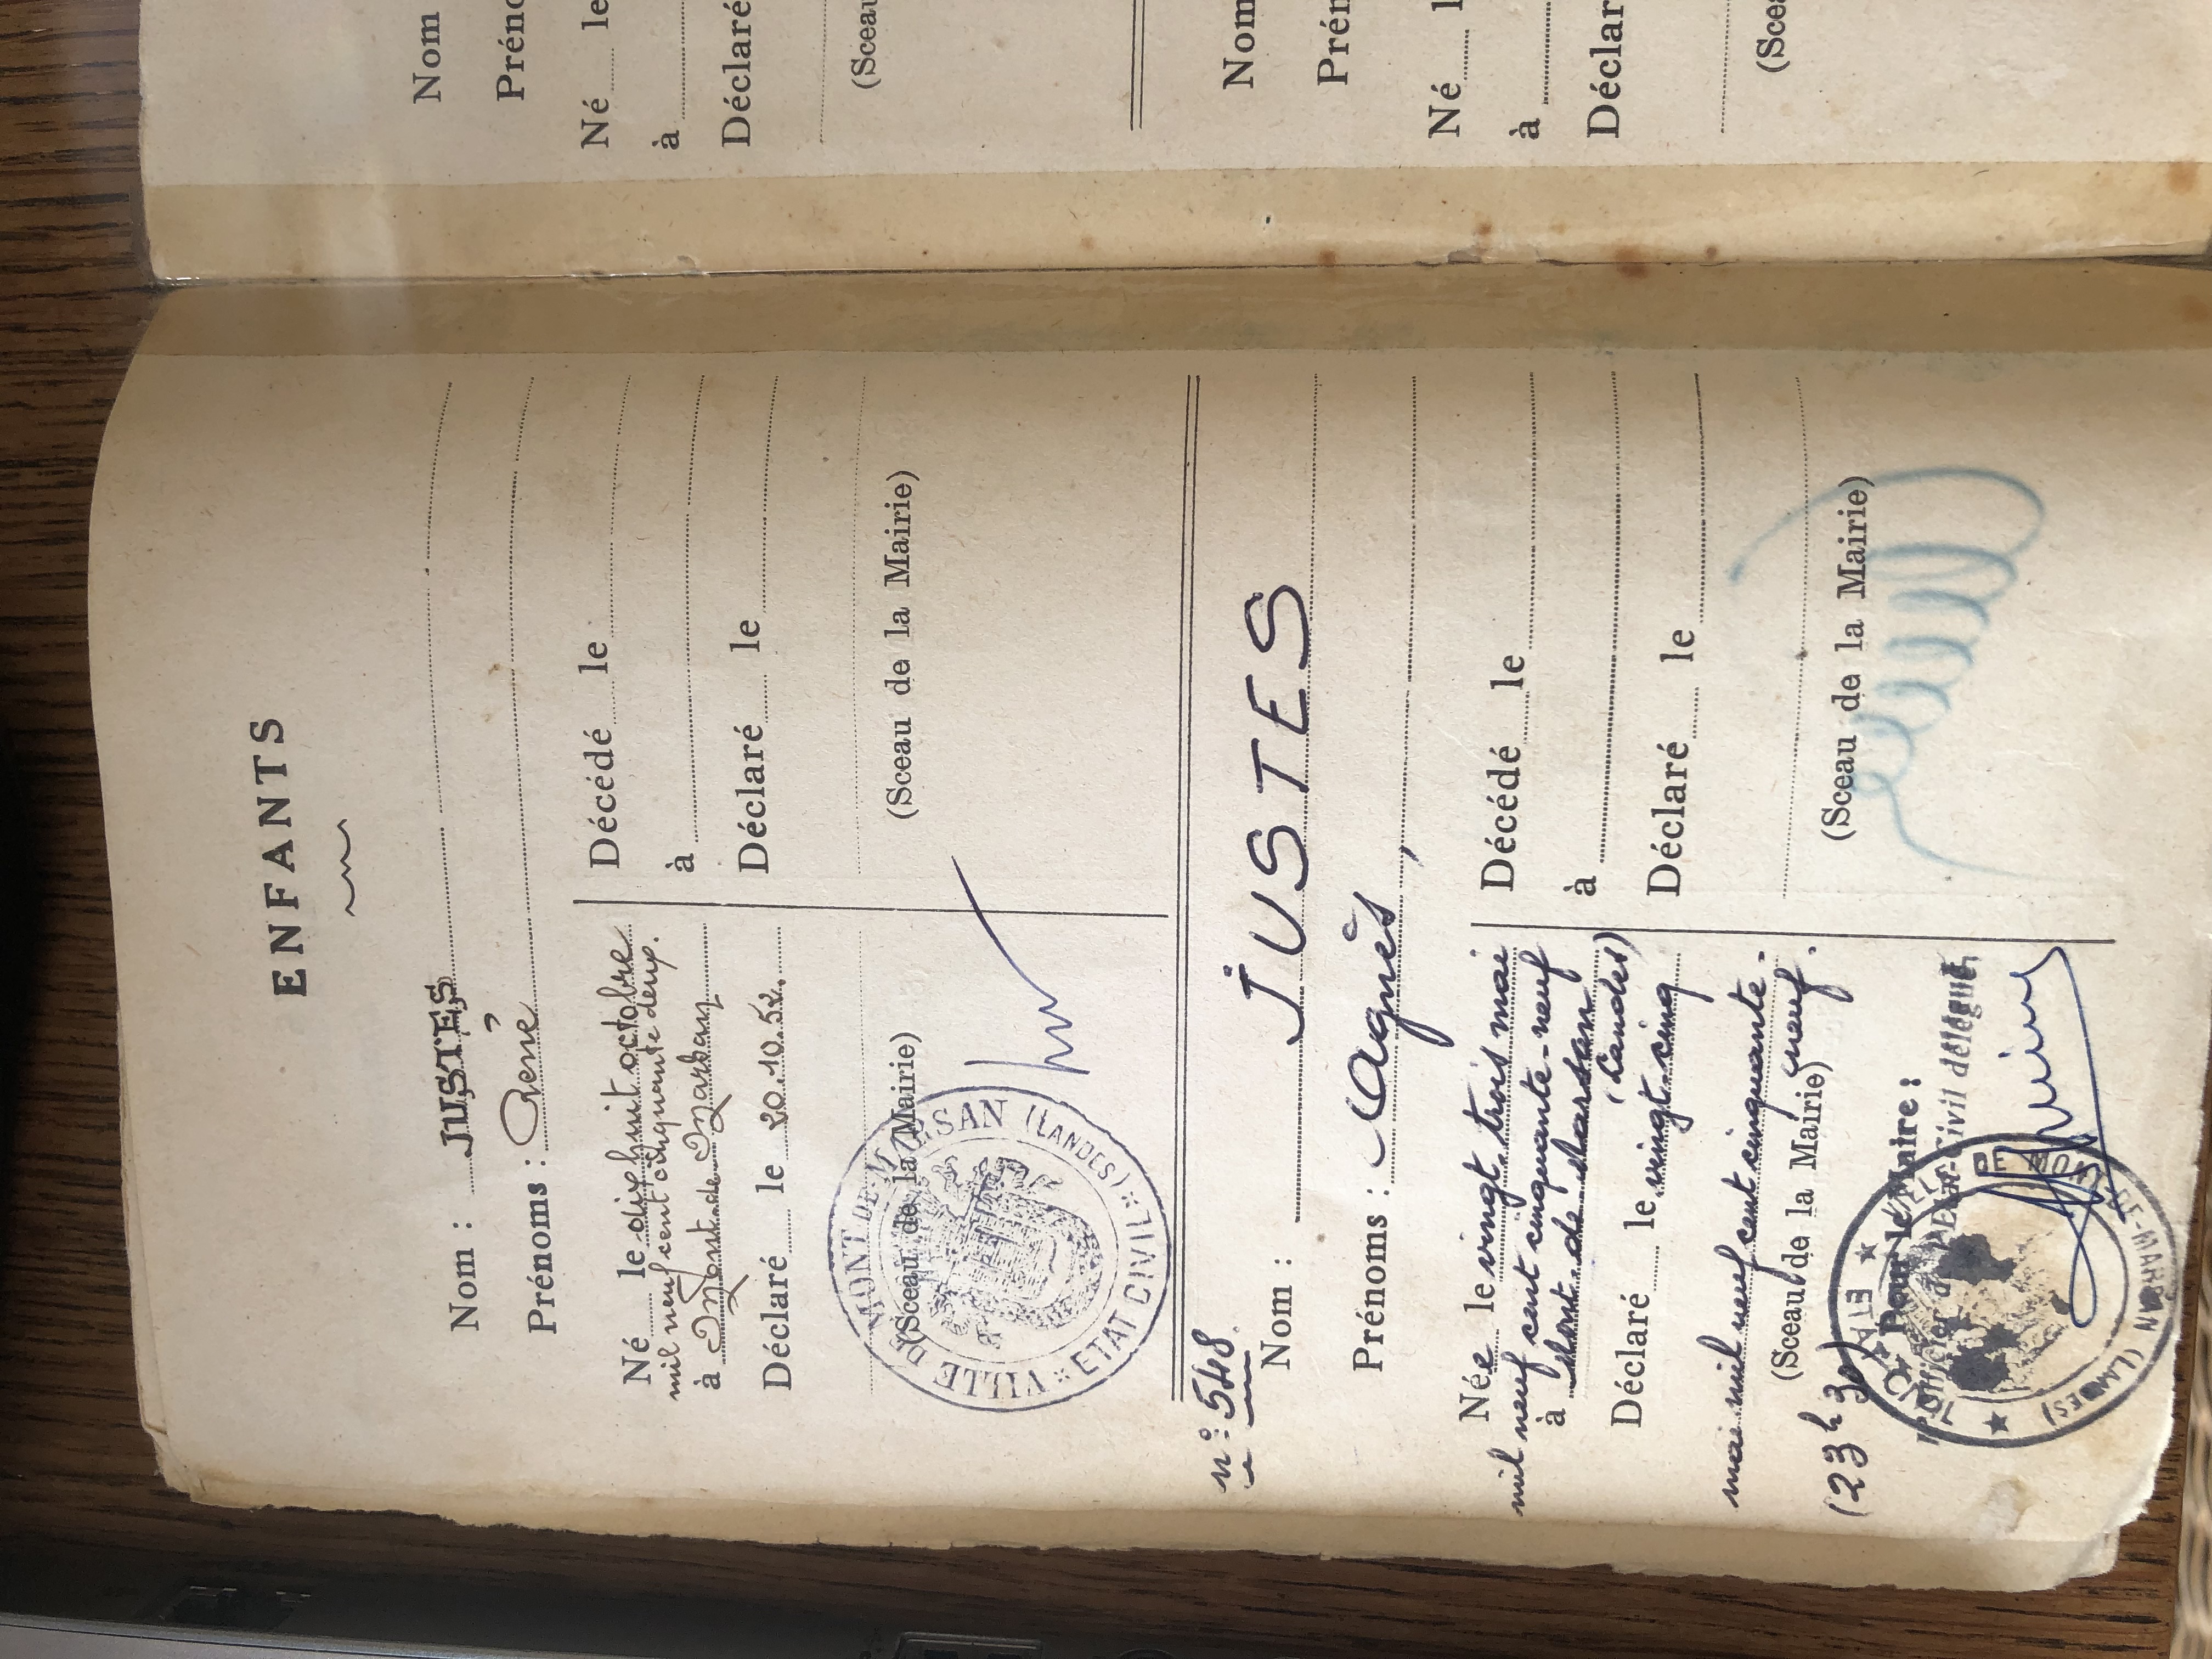 ENFANTS
Nom : JUSTES
Prénoms : René
Né le dix huit octobre
mil neuf cent cinquante deux.
à Mont-de-Marsan
Déclaré le 20.10.52.
(Sceau de la Mairie)
VILLE DE MONT-DE-MARSAN (LANDES) * ETAT CIVIL *
Décédé le
à
Déclaré le
(Sceau de la Mairie)
n°: 548
Nom : JUSTES
Prénoms : Agnès,
Née le vingt trois mai
mil neuf cent cinquante-neuf
à Mont-de-Marsan
(Landes)
Déclaré le vingt-cinq
mai mil neuf cent cinquante-
neuf.
(Sceau de la Mairie)
(23h 30)
Pour le Maire :
l'Officier d'Etat-Civil délégué,
DE MONT-DE-MARSAN (LANDES)
Décédé le
à
Déclaré le
(Sceau de la Mairie)
Nom
Préno
Né le
à
Déclaré
(Sceau
Nom
Prén
Né l
à
Déclar
(Scea